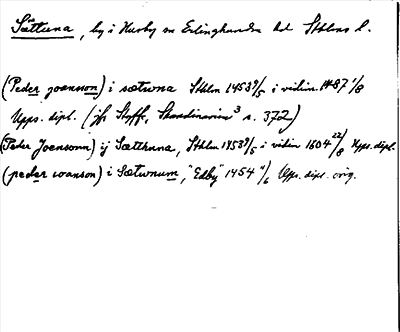 Sættuna, by i Husby sn Erlinghundra hd Sthlms l.
(Peder joansson) i sætwna Sthlm 1453 9/5 i vidim. 1487 1/8
Upps. dipl. (jfr Styffe, Skandinavien³ s. 372)
(Peder Joensonn) ij Sætthuna, Sthlm 1453 9/5 i vidim 1604 22/8 Upps. dipl.
(peder ioanson) i Sætwnum, "Edby" 1454 11/6 Upps. dipl. orig.